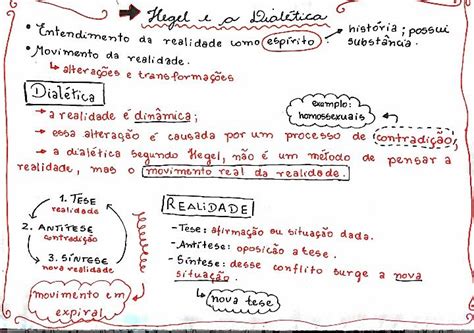 → Hegel e a Dialética
• Entendimento da realidade como espírito. → história; possui substância.
• Movimento da realidade.
↳ alterações e transformações
Dialética
→ a realidade é dinâmica;
exemplo: homossexuais
→ essa alteração é causada por um processo de contradição;
→ a dialética segundo Hegel, não é um método de pensar a
realidade, mas o movimento real da realidade.
1. TESE
realidade
2. ANTÍTESE
contradição
3. SÍNTESE
nova realidade
movimento em
expiral
REALIDADE
- Tese: afirmação ou situação dada.
- Antítese: oposição a tese.
- Síntese: desse conflito surge a nova
situação.
nova tese